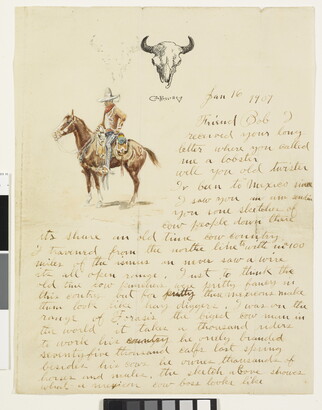 CMRussell
Jan 16 1907
Friend Bob I
received your long
letter where you called
me a lobster
well you old twister
Iv been to Mexico since
I saw you an am
you some sketches of
cow people down there
its shure an old time cow country
I traveled from the north line south in 100
miles of the ismus an never saw a wire
its all open range I ust to think the
old time cow punchers was pretty fancy in
this country but for pretty these mexicons make
them look like hay diggers I was on the
range of Terasis the bigest cow man in
the world it takes a thousand riders
to work his country he onely branded
seventyfive thousand calfs last spring
besides his cows he ownes thousands of
horses and mules the sketch above shows
what a mexicon cow hoss looks like